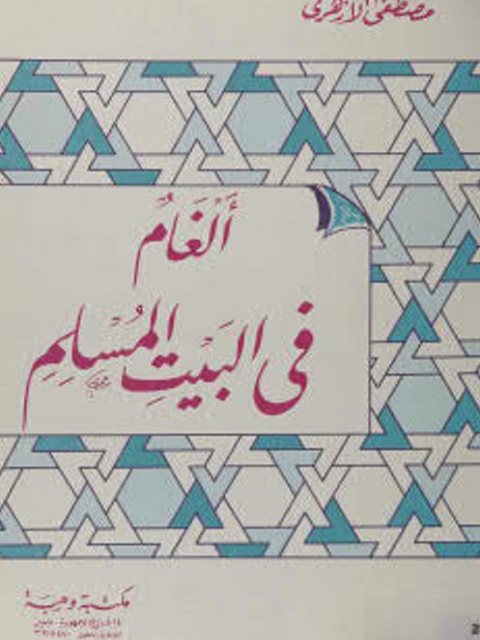 مصطفى الأزهرى
أَلْغَامٌ
فى البَيْتِ المُسْلِمِ
مكتبة وهبة